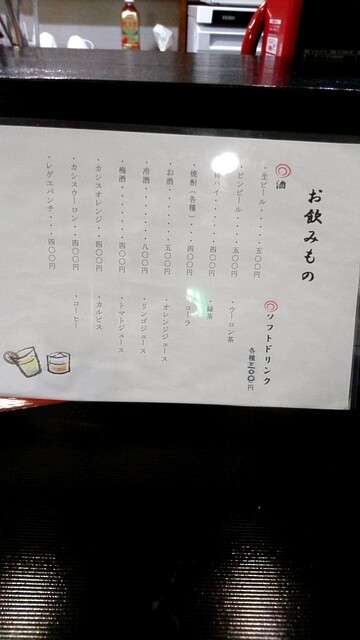 お飲みもの
酒
・生ビール・・・・・五〇〇円
・ビンビール・・・・五〇〇円
ハイ・・・・・四〇〇円
・焼酎(各種)・・四〇〇円
・お酒・・・・・・・五〇〇円
・冷酒・・・・・・・八〇〇円
・梅酒・・・・・・・四〇〇円
・カシスオレンジ・・四〇〇円
・カシスウーロン・・四〇〇円
・レゲエパンチ・・・四〇〇円
ソフトドリンク
各種三〇〇円
・ウーロン茶
・緑茶
・コーラ
・オレンジジュース
・リンゴジュース
・トマトジュース
・カルピス
・コーヒー